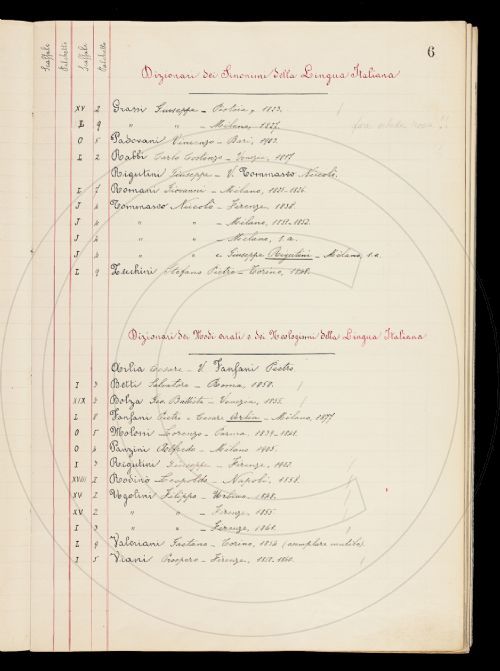 6
Scaffale Palchetto Scaffale Palchetto
Dizionari dei Sinonimi della Lingua Italiana
XV 2 Grassi Giuseppe - Pistoia, 1823.
L 9 " " - Milano, 1827.
O 5 Padovani Vincenzo - Bari, 1902.
L 2 Rabbi Carlo Costanzo - Venezia, 1817
Rigutini Giuseppe - V. Tommaseo Nicolò.
L 7 Romani Giovanni - Milano, 1825-1826.
J 4 Tommaseo Nicolò - Firenze, 1838.
J 4 " " - Milano, 1851-1852.
J 4 " " - Milano, s. a.
J 4 " " e Giuseppe Rigutini - Milano, s. a.
L 9 Zecchini Stefano Pietro - Torino, 1848.
Dizionari dei Modi errati e dei Neologismi della Lingua Italiana
Arlia Cesare - V. Fanfani Pietro
I 3 Betti Salvatore - Roma, 1850.
XIX 3 Bolza Gio. Battista - Venezia, 1855.
L 8 Fanfani Pietro e Cesare Arlia - Milano, 1877
O 5 Molossi Lorenzo - Parma, 1839-1841.
O 4 Panzini Alfredo - Milano 1905.
I 3 Rigutini Giuseppe - Firenze, 1902
XVIII I Rodinò Leopoldo - Napoli, 1858.
XV 2 Ugolini Filippo - Urbino, 1848.
XV 2 " " - Firenze, 1855
I 3 " " - Firenze, 1861.
L 9 Valeriani Gaetano - Torino, 1854 (esemplare mutilo).
I 5 Viani Prospero - Firenze, 1858-1860.